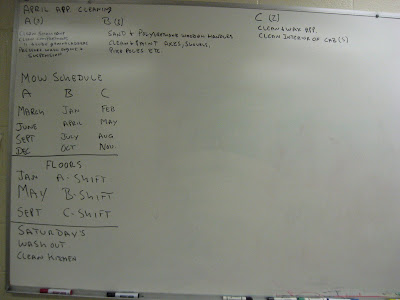 APRIL APP. CLEANING
A (1)
CLEAN
CLEAN COMPARTMENTS
PRESSURE WASH ENGINE &
SUSPENSION
B (3)
SAND & POLYURETHANE WOODEN HANDLES
CLEAN & PAINT AXES, SHOVELS,
PIKE POLES ETC.
C (2)
CLEAN & WAX APP.
CLEAN INTERIOR OF CAB(S)
MOW SCHEDULE
A B C
MARCH JAN FEB
JUNE APRIL MAY
SEPT JULY AUG
DEC OCT NOV.
FLOORS
JAN A-SHIFT
MAY B-SHIFT
SEPT C-SHIFT
SATURDAYS
WASH OUT
CLEAN KITCHEN